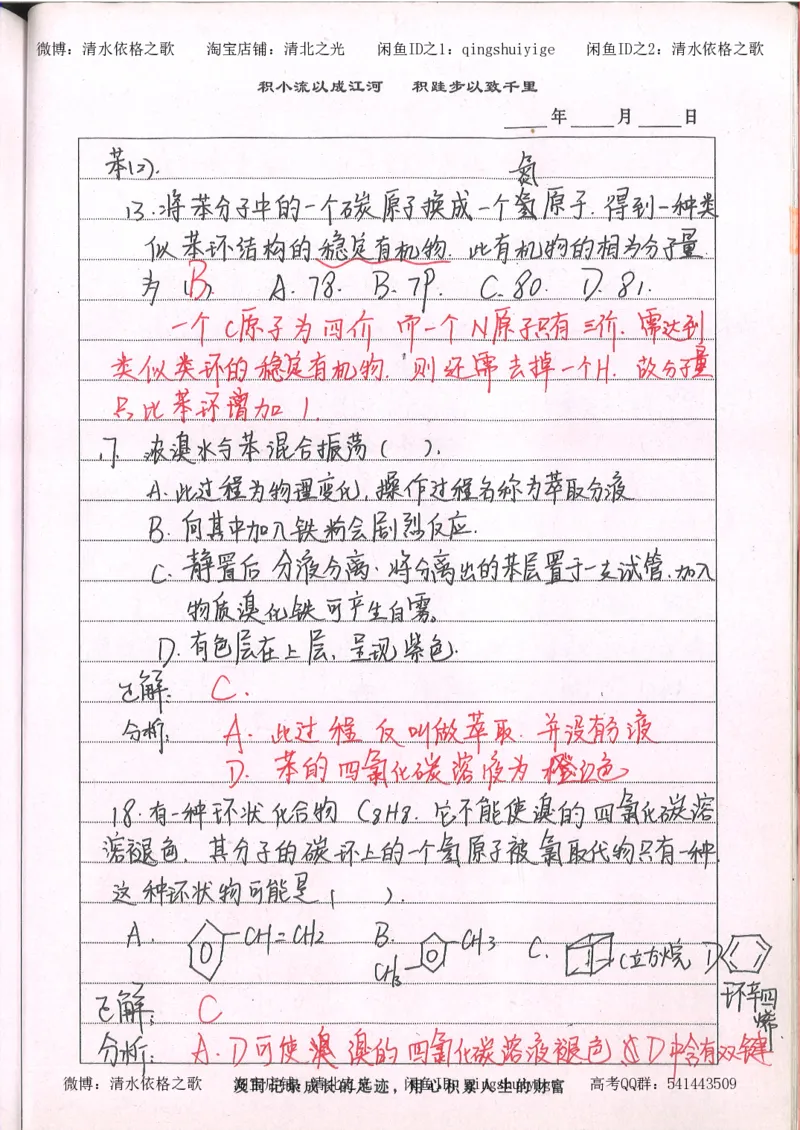 微博：清水依格之歌 淘宝店铺：清北之光 闲鱼ID之1：qingshuiyige 闲鱼ID之2：清水依格之歌
积小流以成江河 积跬步以致千里
年 月 日
苯(2).
氮
13.将苯分子中的一个碳原子换成一个氢原子.得到一种类
似苯环结构的稳定有机物.此有机物的相为分子量
为(B). A.78. B.79. C.80. D.81.
一个C原子为四价 而一个N原子只有三价.需达到
类似类环的稳定有机物.则还需去掉一个H.故分子量
只比苯环增加1.
17. 浓溴水与苯混合振荡( ).
A.此过程为物理变化,操作过程名称为萃取分液
B.向其中加入铁粉会剧烈反应.
C.静置后分液分离.将分离出的苯层置于一支试管.加入
物质溴化铁可产生白雾。
D.有色层在上层,呈现紫色.
正解: C.
分析: A.此过程仅叫做萃取.并没有分液
D.苯的四氯化碳溶液为橙红色
18.有一种环状化合物C8H8.它不能使溴的四氯化碳溶
溶褪色.其分子的碳环上的一个氢原子被氯取代物只有一种.
这种环状物可能是( ).
A. CH=CH2 B. CH3 CH3 C. (立方烷 D
环辛四烯
正解: C
分析: A.D可使溴溴的四氯化碳溶液褪色 D中含有双键
微博：清水依格之歌 淘宝店铺：清北之光 闲鱼ID：qingshuiyige 高考QQ群：541443509
及时记录成长的足迹，用心积累人生的财富